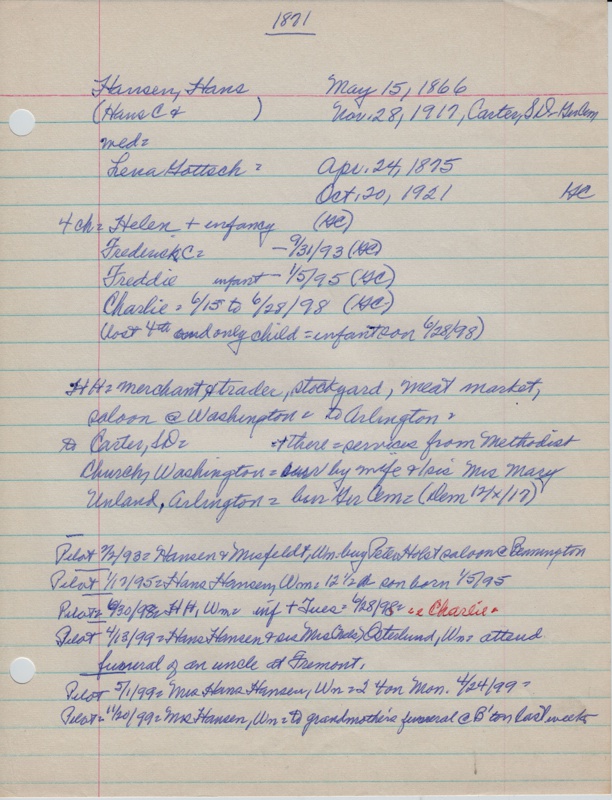 1871
Hansen, Hans May 15, 1866
(Hans C & ) Nov. 28, 1917, Carter, SD - Ger Cem
med=
Lena Gottsch = Apr. 24, 1875
Oct. 20, 1921 HC
4 ch = Helen + infancy (HC)
Frederick C = - 9/31/93 (HC)
Freddie infant - 1/5/95 (HC)
Charlie = 6/15 to 6/28/98 (HC)
(lost 4th and only child = infant son 6/28/98)
HH = merchant & trader, stockyard, meat market,
saloon @ Washington = to Arlington =
to Carter, SD = + there = services from Methodist
Church, Washington = by wife & sis Mrs Mary
Unland, Arlington = bur Ger Cem = (Dem 12/x/17)
Pilot 9/2/93 = Hansen & Misfeldt, Wn buy Peter Holst saloon @ Bennington
Pilot 1/17/95 = Hans Hansen, Wn = 12 1/2 lb son born 1/5/95
Pilot = 6/30/98 = HH, Wn = inf + Tues = 6/28/98 = Charlie
Pilot 4/13/99 = Hans Hansen & sis Mrs Osterlund, Wn = attend
funeral of an uncle at Fremont.
Pilot 5/1/99 = Mrs Hans Hansen, Wn = 24 on Mon. 4/24/99 =
Pilot = 11/20/99 = Mrs Hansen, Wn = to grandmother's funeral @ B'ton last week